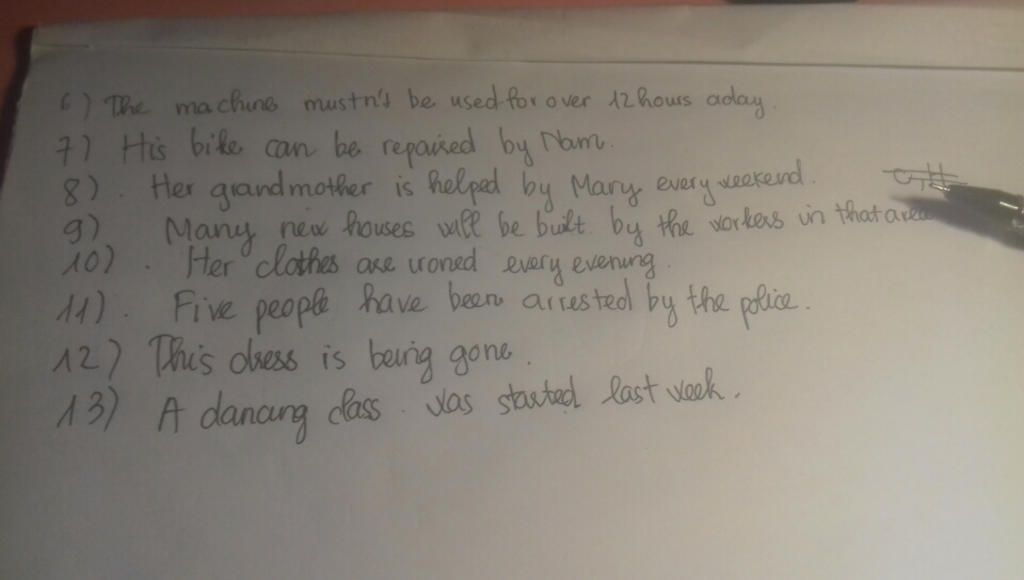 6) The machine mustn's be used for over 12 hours a day.
7) His bike can be repaired by Nam.
8). Her grandmother is helped by Mary every weekend.
9) Many new houses will be built. by the workers in that area
10). Her clothes are ironed every evening.
11). Five people have been arrested by the police.
12) This dress is being gone.
13) A dancing class. was started last week.